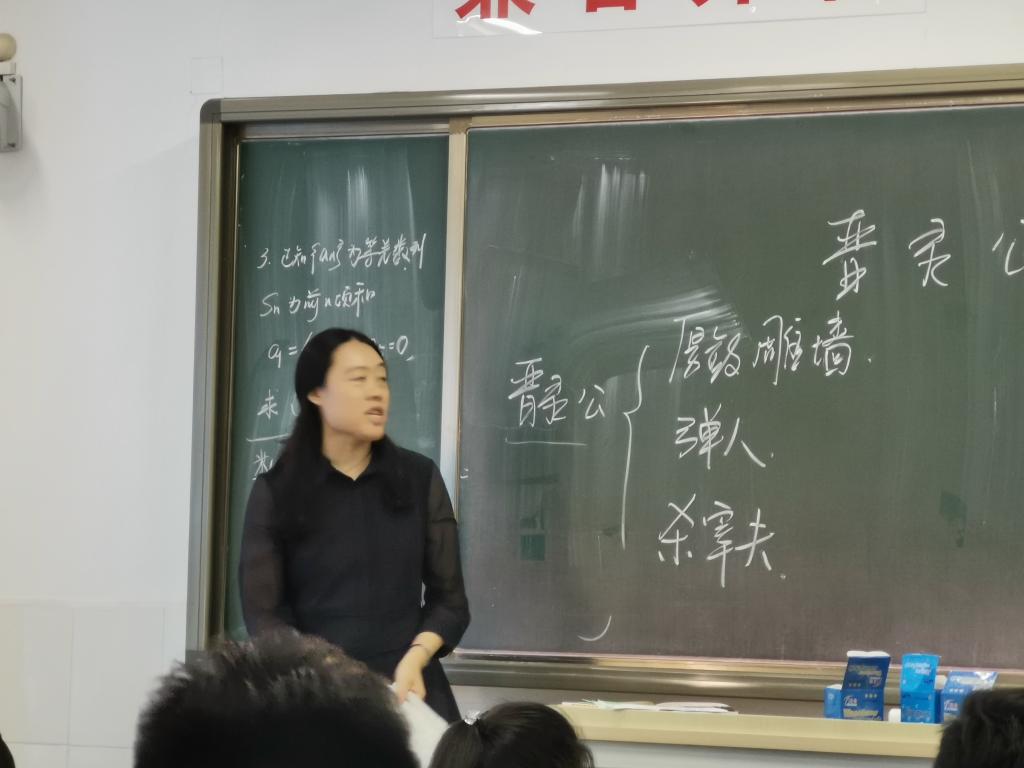 3. 已知{an}为等差数列
Sn为前n项和
a₁=
=0
求
晋灵公
晋灵公
厚敛雕墙.
弹人.
杀宰夫.